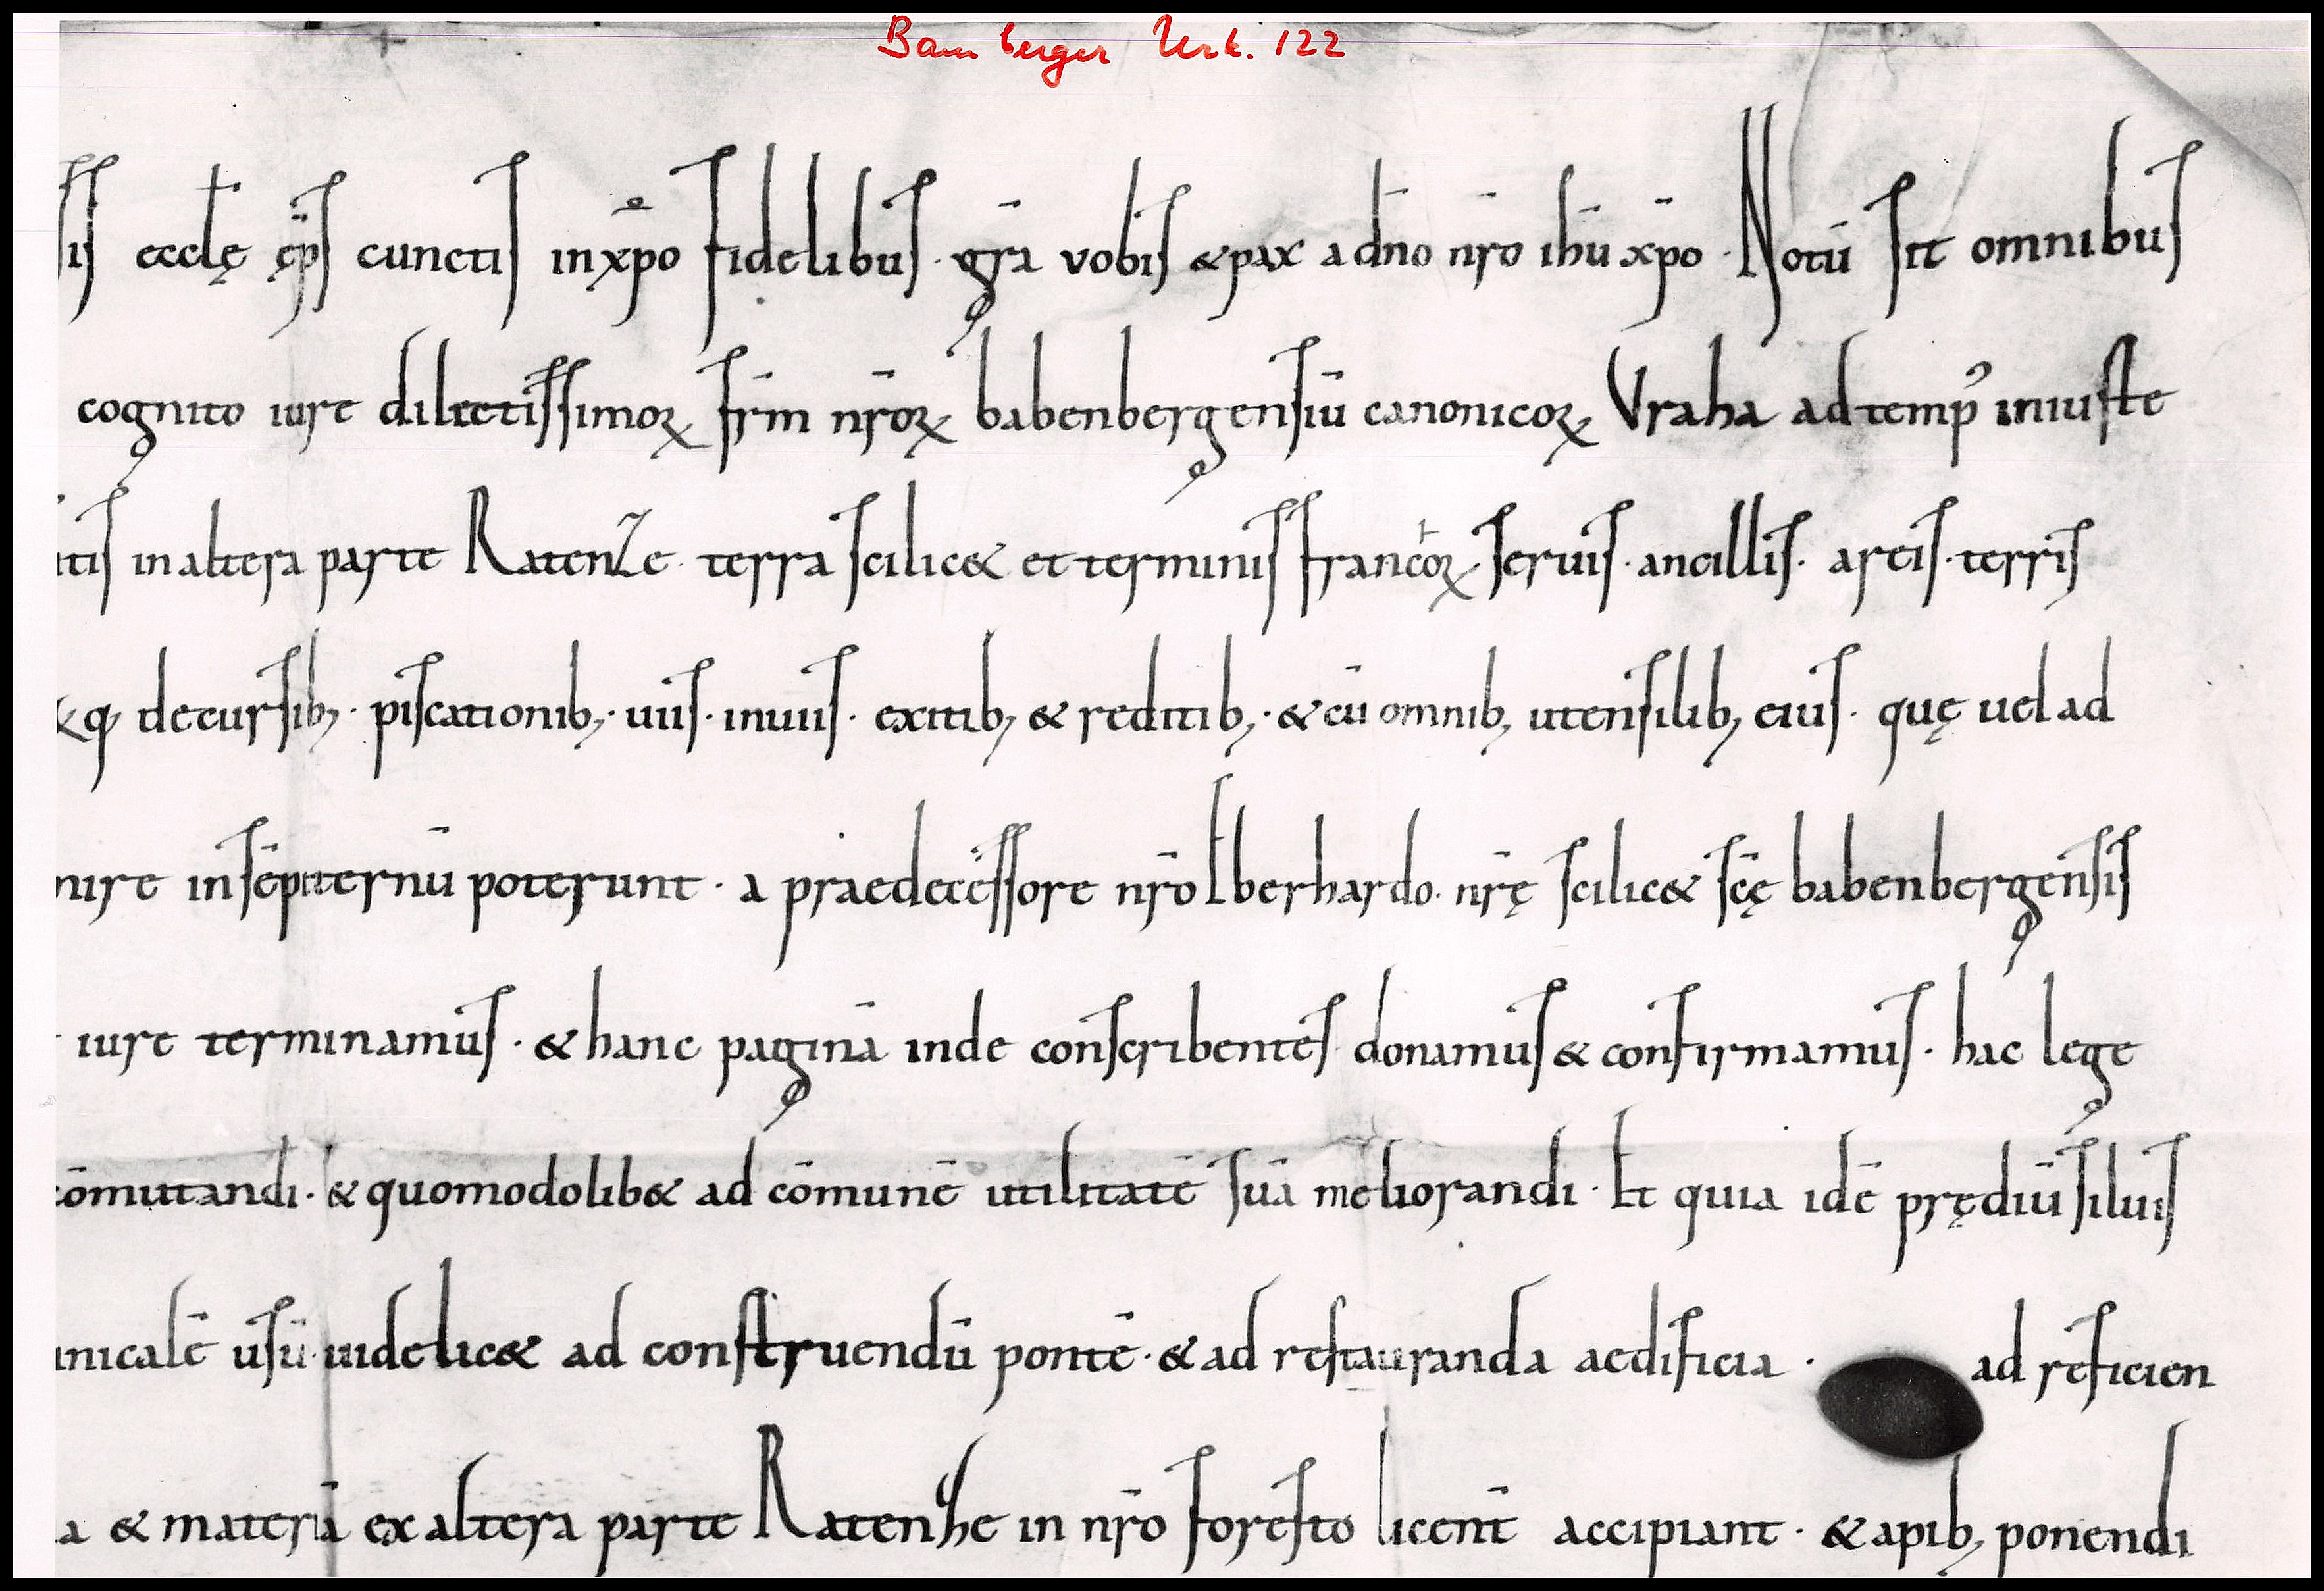 Bamberger Urk. 122
sis ecclę ep̄s cunctis in xp̄o fidelibus · gr̄a vobis & pax a dn̄o nr̄o ihū xp̄o · Notū sit omnibus
cognito iure dilectissimoꝝ fr̄m nr̄oꝝ babenbergensiū canonicoꝝ Vraha ad temp᾿ iniuste
itis in altera parte Ratenze · terra scilic& et terminis francoꝝ · seruis · ancillis · areis · terris
&q; decursib; · piscationib; · uiis · inuiis · exitib; & reditib; · & cū omnib; utensilib; eius · quę uel ad
nire in sēpiternū poterunt · a praedecessore nr̄o Eberhardo · nr̄ę scilic& sc̄ę babenbergensis
iure terminamus · & hanc paginā inde conscribentes donamus & confirmamus · hac lege
cōmutandi · & quomodolib& ad cōmunē utilitatē suā meliorandi · Et quia idē prędiū siluis
nicalē usū · uidelic& ad construendū pontē · & ad restauranda aedificia · ad reficien
a & materiā ex altera parte Ratenshe in nr̄o foresto licent̄ accipiant · & apib; ponendi